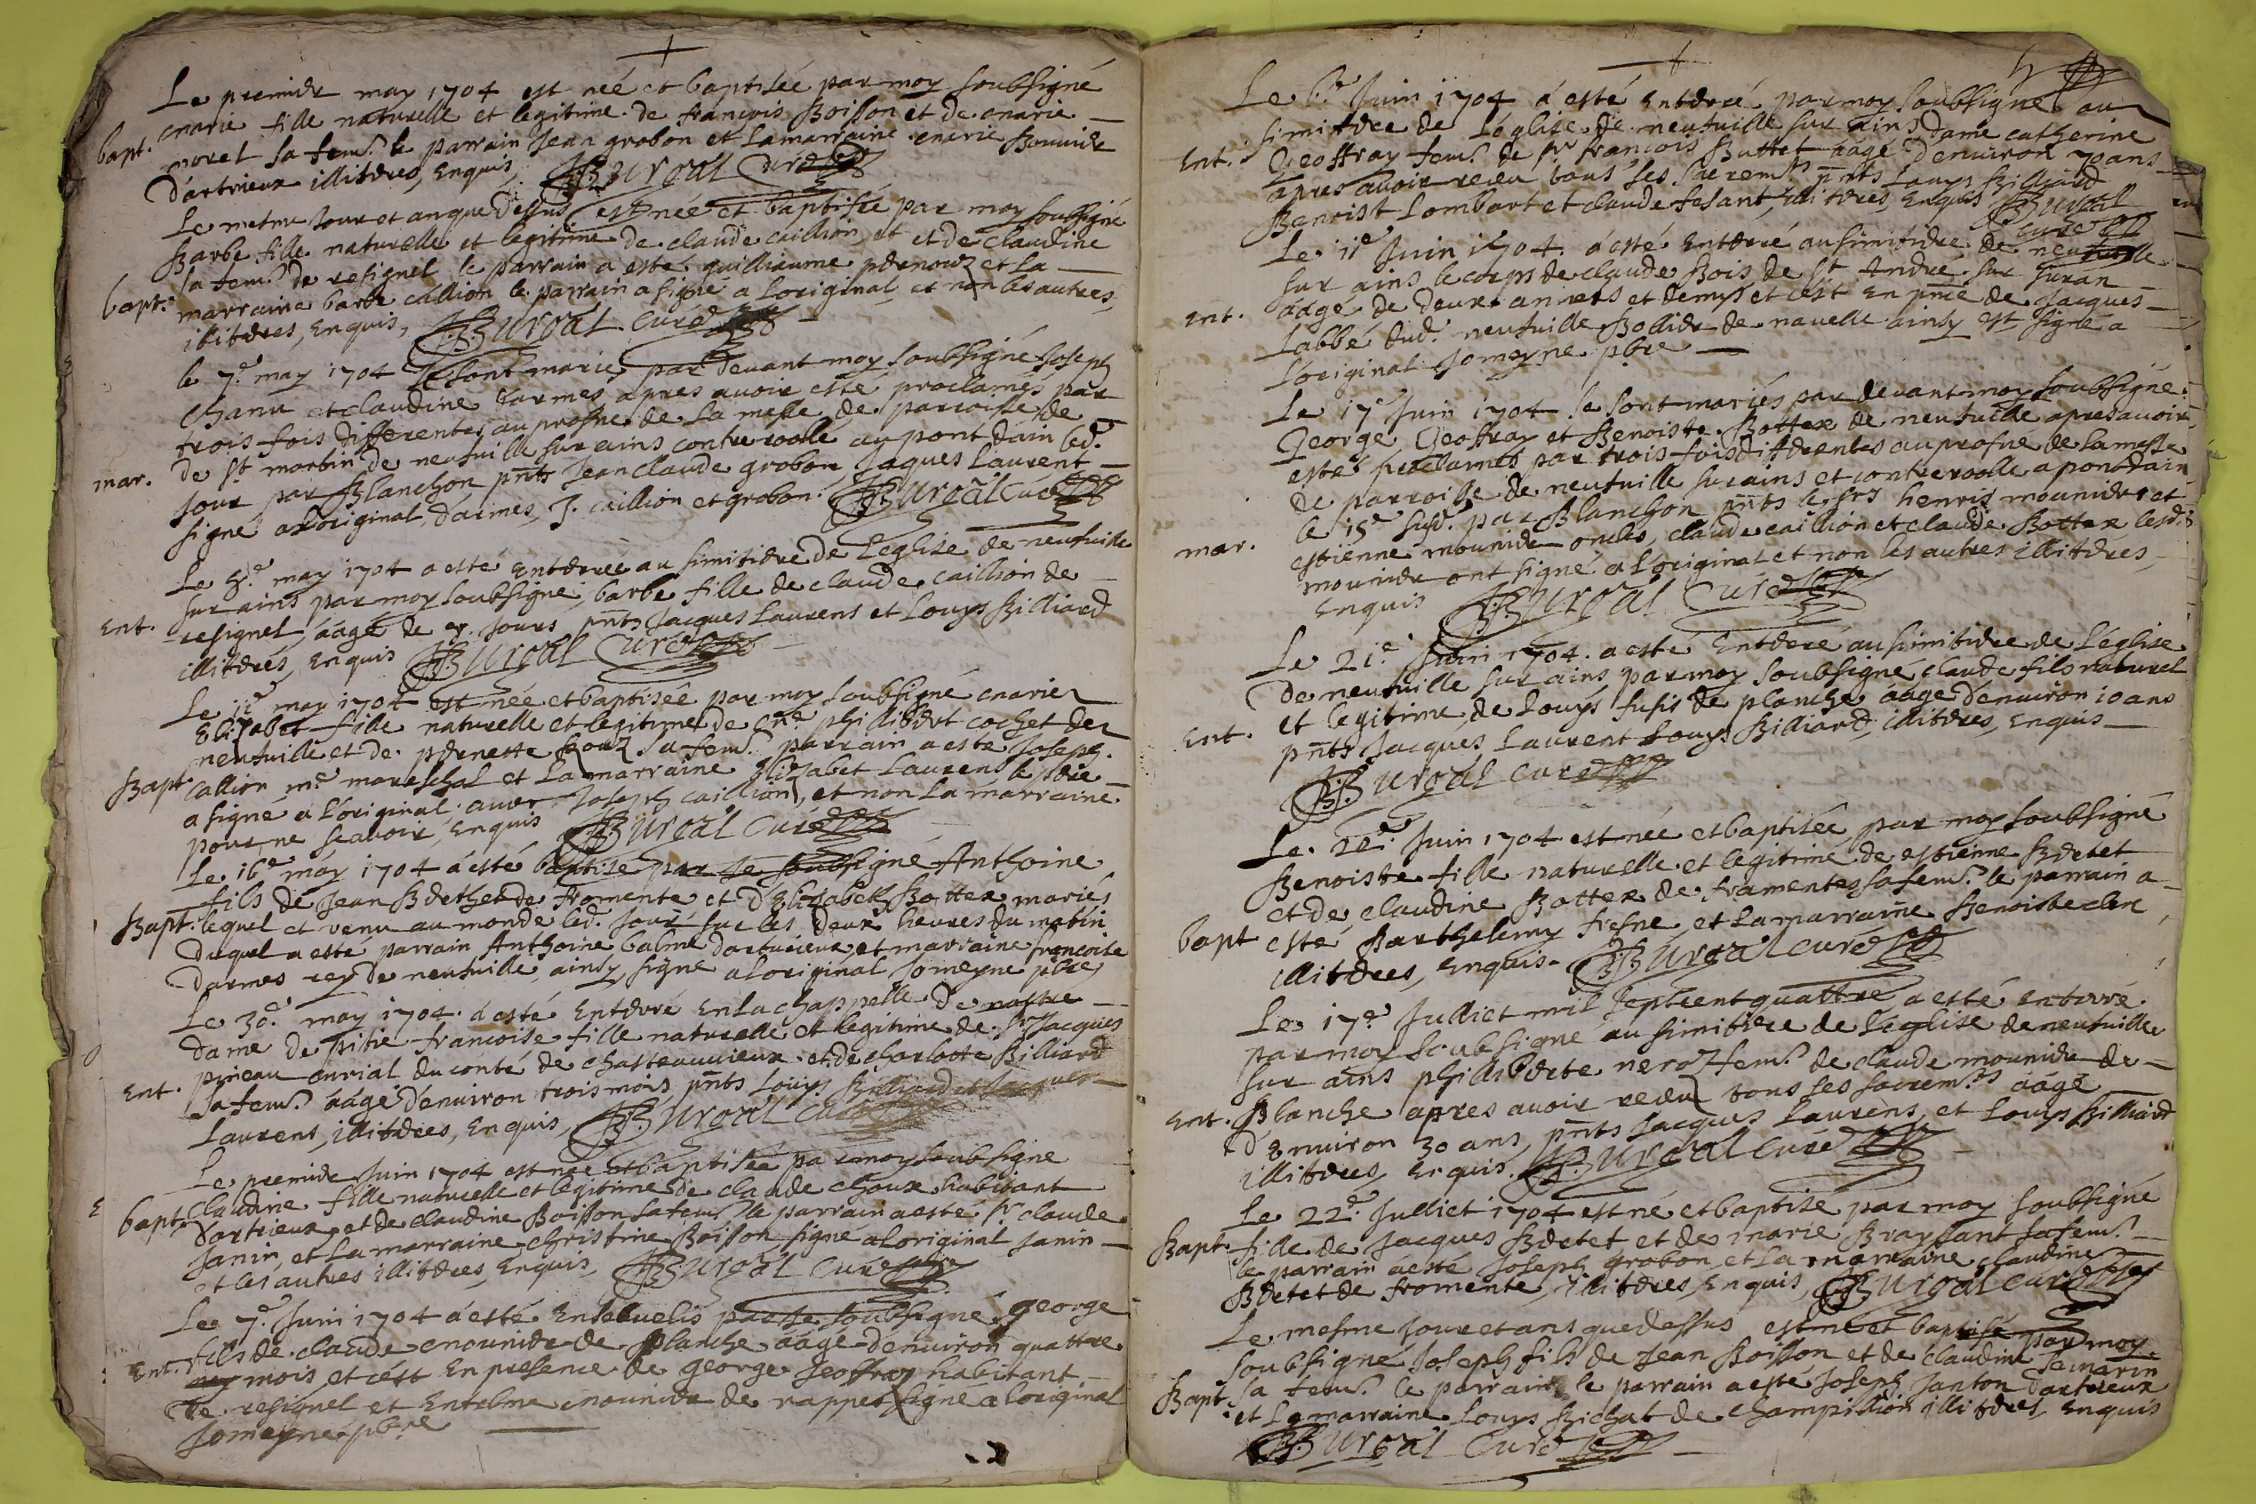 Le premier may 1704 est née et baptisée par moy soubsigné
marie fille naturelle et legitime de françois Boisson et de marie
bapt. morel sa fem.e le parrain Jean grobon et la marraine marie Bouvier
d'artrieux illiteres, Enquis, Burgal Curé
Le mesme Jour et an que dessus est née et baptisée par moy soubsigné
Barbe fille naturelle et legitime de claude caillion et et de claudine
sa fem.e de resignel le parrain a esté guilliaume et la
bapt. marraine barbe callion le parrain a signé a Loriginal et non les autres
illiteres, Enquis, Burgal Curé
le 7.e may 1704 se sont mariés par devant moy soubsigné Joseph
et claudine darmes apres avoir esté proclamés par
trois fois differentes au prosne de La messe de parroisse de
mar. de St martin de neufville sur ains controlle au pont dain led.
Jour par Blanchon pnts Jean claude grobon Jaques Laurent
signé a Loriginal, darmes, J. caillion et grobon. Burgal Curé
Le 8.e may 1704 a esté Enterrée au simitiere de L'eglise de neufville
sur ains par moy soubsigné, barbe fille de claude caillion de
Ent. resignel, áagé de jours pnts Jacques Laurens et Louys Billiard
illiterés, Enquis Burgal Curé
Le 11e may 1704 est née et baptisée par moy soubsigné marie
Elizabet fille naturelle et legitime de philibert cochet de
neufville et de pernette sa fem.e parrain a esté Joseph
Bapt callion m.e mareschal et La marraine Elizabet Laurens le
a signé a L'original avec Joseph caillion, et non La marraine
pour ne scavoir, Enquis Burgal Curé
Le 16e may 1704 á esté baptisé par Je soubsigné Anthoine
fils de Jean Berthet de fromente et d'Elizabeth Bottex mariés
Bapt. lequel et venu au monde led. Jour sur les deux heures du matin
duquel a esté parrain Anthoine balme dartrieux, et marraine françoise
darmes rey de neufville, ainsy signé a Loriginal Jomeyne pbre
Le 30.e may 1704 á esté Enterré En La chappelle de nostre
dame de pitié françoise fille naturelle et legitime de Sr Jacques
pineau curial du conté de chasteauvieux et de charlotte Billiard
Ent. sa fem.e áagé d'environ trois mois pnts Louys Billiard et Jacques
Laurens, illiteres, Enquis, Burgal Curé
Le premier Juin 1704 est née et baptisée par moy soubsigné
bapt. claudine fille naturelle et legitime de claude choux habitant
d'artrieux et de claudine Boisson sa fem.e le parrain a esté Sr claude
Janin, et La marraine christine Boisson signé a Loriginal Janin
et les autres illiteres, Enquis, Burgal Curé
Le 7.e Juin 1704 á esté Ensevelis par Je soubsigné george
Ent. fils de claude mounier de planche áagé d'environ quattre
mois et c'est En presence de george Jeoffray habitant
de resignel et Entelme mounier de rappes signé a Loriginal
Jomeyne pbre
Le Juin 1704 á esté Enterré par moy soubsigné au
simitiere de L'église de neufville sur ains dame catherine
Ent. Geoffray fem.e de Sr françois Buttet áagé d'environ 70 ans
apres avoir receu tous ses sacrem.ts pnts Louys Billiard
Benoist Lombart et claude fesant, illiteres, Enquis Burgal
Curé
Le 11e Juin 1704. á esté Enterré au simitiere de neufville
sur ains le corps de claude Bois de St André sur Suran
Ent. áagé de deux annees et demys et c'est En pnce de Jacques
Labbé dud. neufville Bollier de navelle ainsy est signé a
L'original Jomeyne pbre
Le 17e Juin 1704 se sont mariés par devant moy soubsigné
George Geoffray et Benoiste Bottex de neufville apres avoir
esté proclamés par trois fois differentes au prosne de La messe
de parroisse de neufville sur ains et controolle a pontdain
le 15.e susd. par Blanchon pnts les srs henris mounier et
mar. estienne mounier oncles, claude caillion et claude Bottex lesd.
mounier ont signé a L'original et non les autres illiteres,
Enquis Burgal Curé
Le 21.e Juin 1704. a esté Enterré au simitiere de L'église
de neufville sur ains par moy soubsigné claude fils naturel
et legitime de Louys fusis de planche áagé d'environ 10 ans
Ent. pnts Jacques Laurent Louys Billiard, illiteres, Enquis
Burgal Curé
Le 22.e Juin 1704 est née et baptisée par moy soubsigné
Benoiste fille naturelle et legitime de estienne Bertet
et de claudine Bottex de framentes sa fem.e le parrain a
bapt esté Barthelemy fresne, et La marraine Benoiste clerc
illiteres, Enquis. Burgal Curé
Le 17.e Julliet mil septcent quattre a esté enterré
par moy soubsigné au simitiere de L'eglise de neufville
sur ains philiberte neroz fem.e de claude mounier de
Ent. Blanche apres avoir receu tous ses sacrem.ts áagé
d'Environ 30 ans, pnts Jacques Laurens, et Louys Billiard
illiteres, Enquis. Burgal Curé
Le 22.e Julliet 1704 est né et baptisé par moy soubsigné
Bapt. fille de Jacques Bertet et de marie Braysant sa fem.e
le parrain á esté Joseph grobon et La marraine claudine
Bertet de fromente, illiteres, Enquis, Burgal Curé
Le mesme Jour et ans que dessus est né et baptisé par moy
soubsigné Joseph fils de Jean Boisson et de claudine
Bapt. sa fem.e le parrain le parrain a esté Joseph Janton d'artrieux
et La marraine Louys Bichat de champillion illiteres Enquis
Burgal Curé